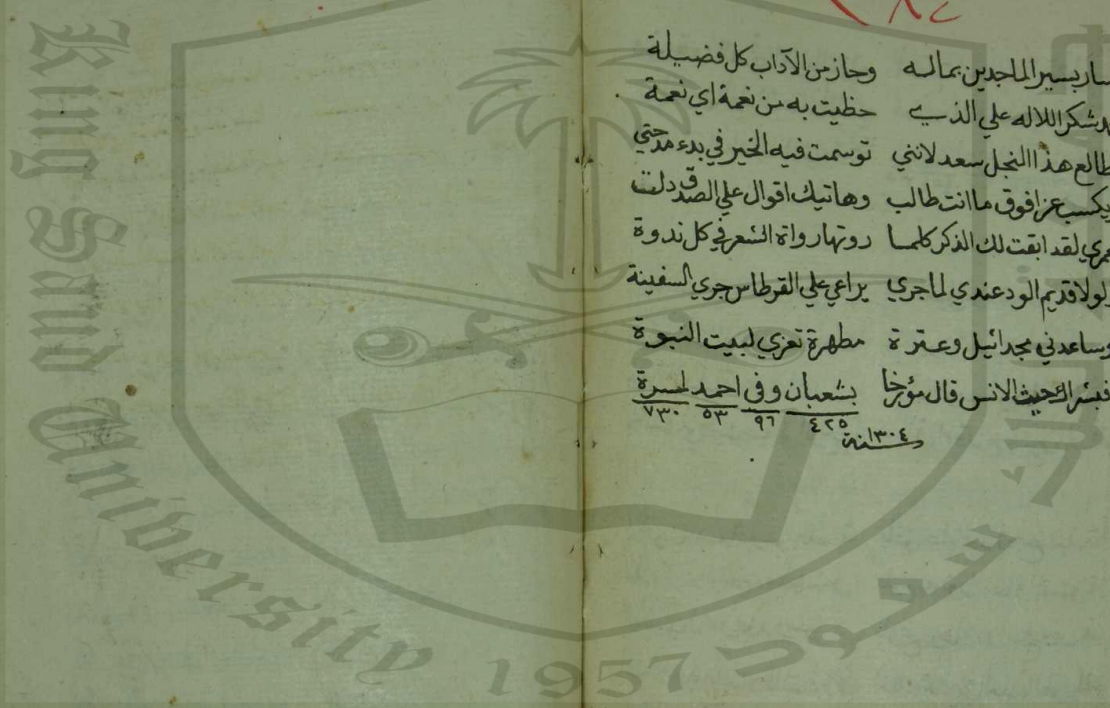 ٨٤
سار بسير الماجدين بماله وحاز من الآداب كل فضيلة
شكر اللاله علي الذي حظيت به من نعمة اي نعمة
طالع هذا النجل سعد لانني توسمت فيه الخير في بدء مدحتي
يكسب عزا فوق ما انت طالب وهاتيك اقوال علي الصدق دلت
لقد ابقت لك الذكر كلما روتها رواة الشعر في كل ندوة
لولا قديم الود عندي لما جري يراعي علي القرطاس جري السفينة
وساعدني مجد اثيل وعترة مطهرة تعزي لبيت النبوة
حيث الانس قال مؤرخا بشعبان وفي احمد لمسرة
٤٢٥ ٩٦ ٥٣ ٧٣٠
سنة ١٣٠٤
King Saud University
1957